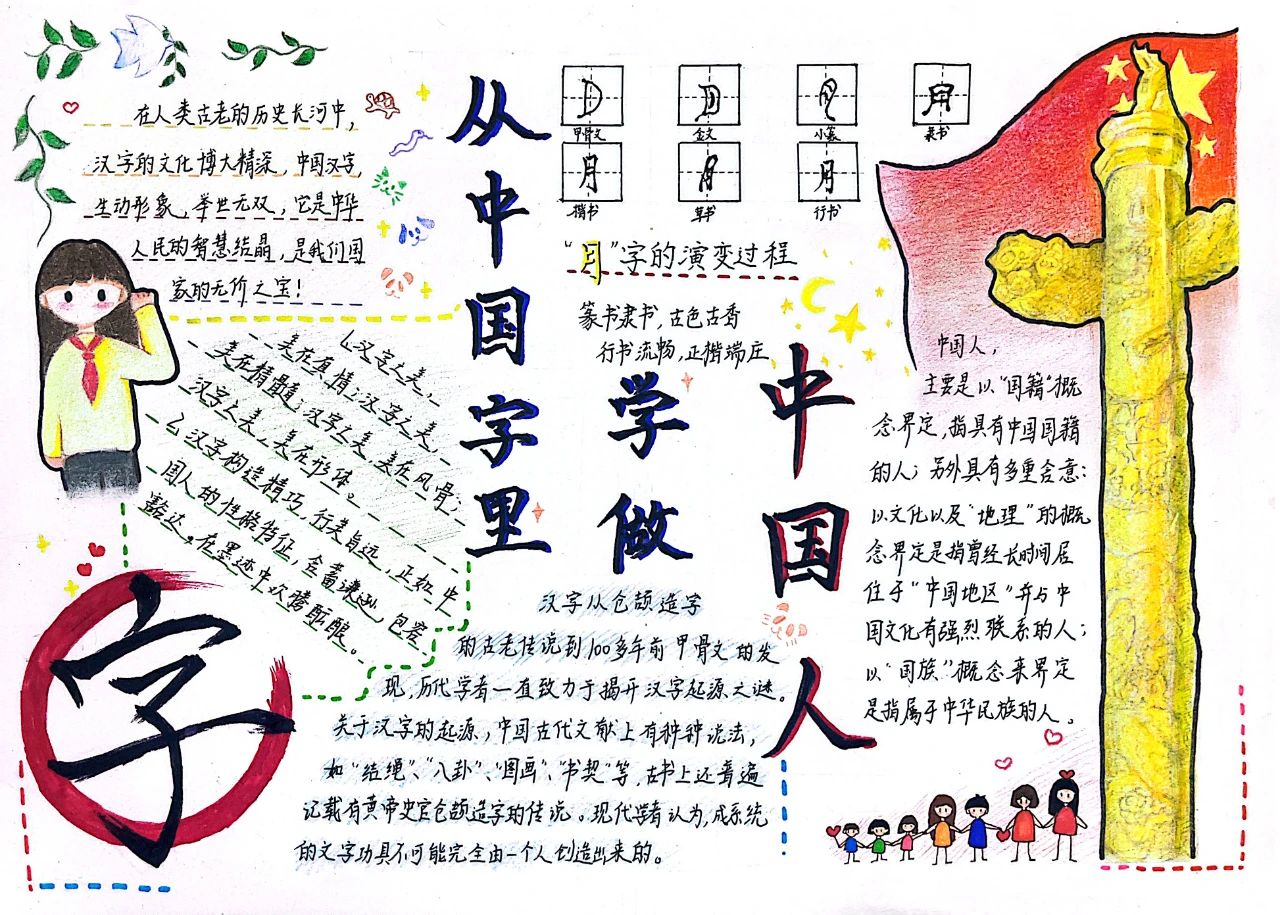 从中国字里
学做
中国人
在人类古老的历史长河中,
汉字的文化博大精深,中国汉字,
生动形象,举世无双,它是中华
人民的智慧结晶,是我们国
家的无价之宝!
甲骨文 金文 小篆 隶书
月 月 月
楷书 草书 行书
“月”字的演变过程
篆书隶书,古色古香
行书流畅,正楷端庄
汉字之美,
美在真情;汉字之美,
美在精髓;汉字之美,美在风骨;
汉字之美,美在形体。
汉字构造精巧,行美自远,正如中
国人的性格特征,含蓄谦逊,包容
豁达,在墨迹中欢腾酝酿。
字
汉字从仓颉造字
的古老传说到100多年前甲骨文的发
现,历代学者一直致力于揭开汉字起源之谜。
关于汉字的起源,中国古代文献上有种种说法,
如“结绳”、“八卦”、“图画”、“书契”等,古书上还普遍
记载有黄帝史官仓颉造字的传说。现代学者认为,成系统
的文字功具不可能完全由一个人创造出来的。
中国人,
主要是以“国籍”概
念界定,指具有中国国籍
的人;另外具有多重含意:
以文化以及“地理”的概
念界定是指曾经长时间居
住于“中国地区”并与中
国文化有强烈联系的人;
以“国族”概念来界定
是指属于中华民族的人。